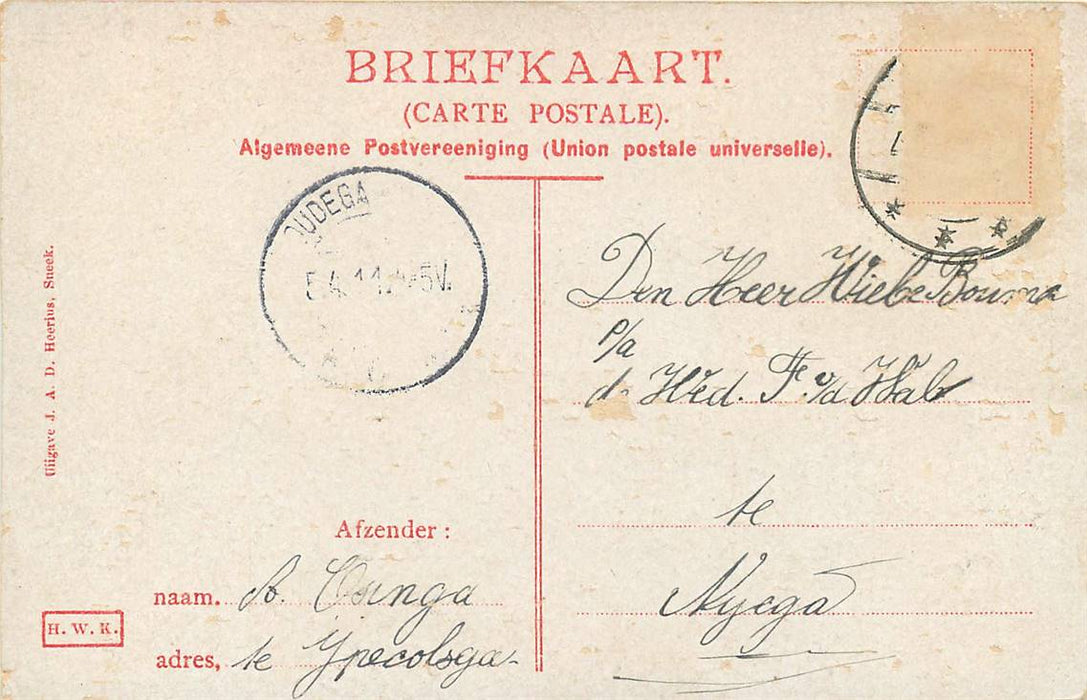 BRIEFKAART.
(CARTE POSTALE).
Algemeene Postvereeniging (Union postale universelle).
OUDEGA
5.4.11. 5V.
Den Heer Wiebe Bouma
p/a
de Wed. F. v/d Wal
te
Nyega
Uitgave J. A. D. Heerius, Sneek.
Afzender:
naam. A. Osinga
adres, te Ypecolsga
H. W. K.